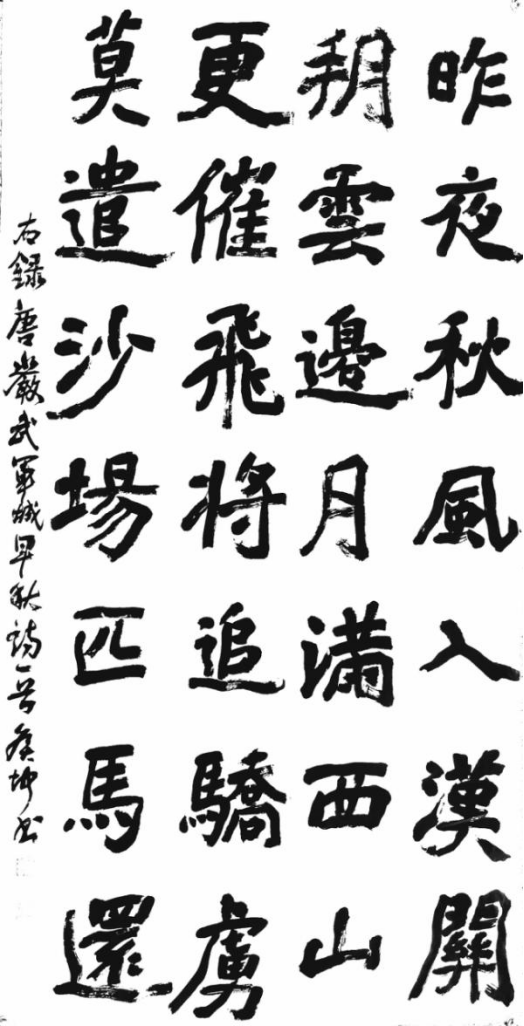 昨夜秋風入漢關
朔雲邊月滿西山
更催飛將追驕虜
莫遣沙場匹馬還
右錄唐嚴武軍城早秋詩一首 坤書